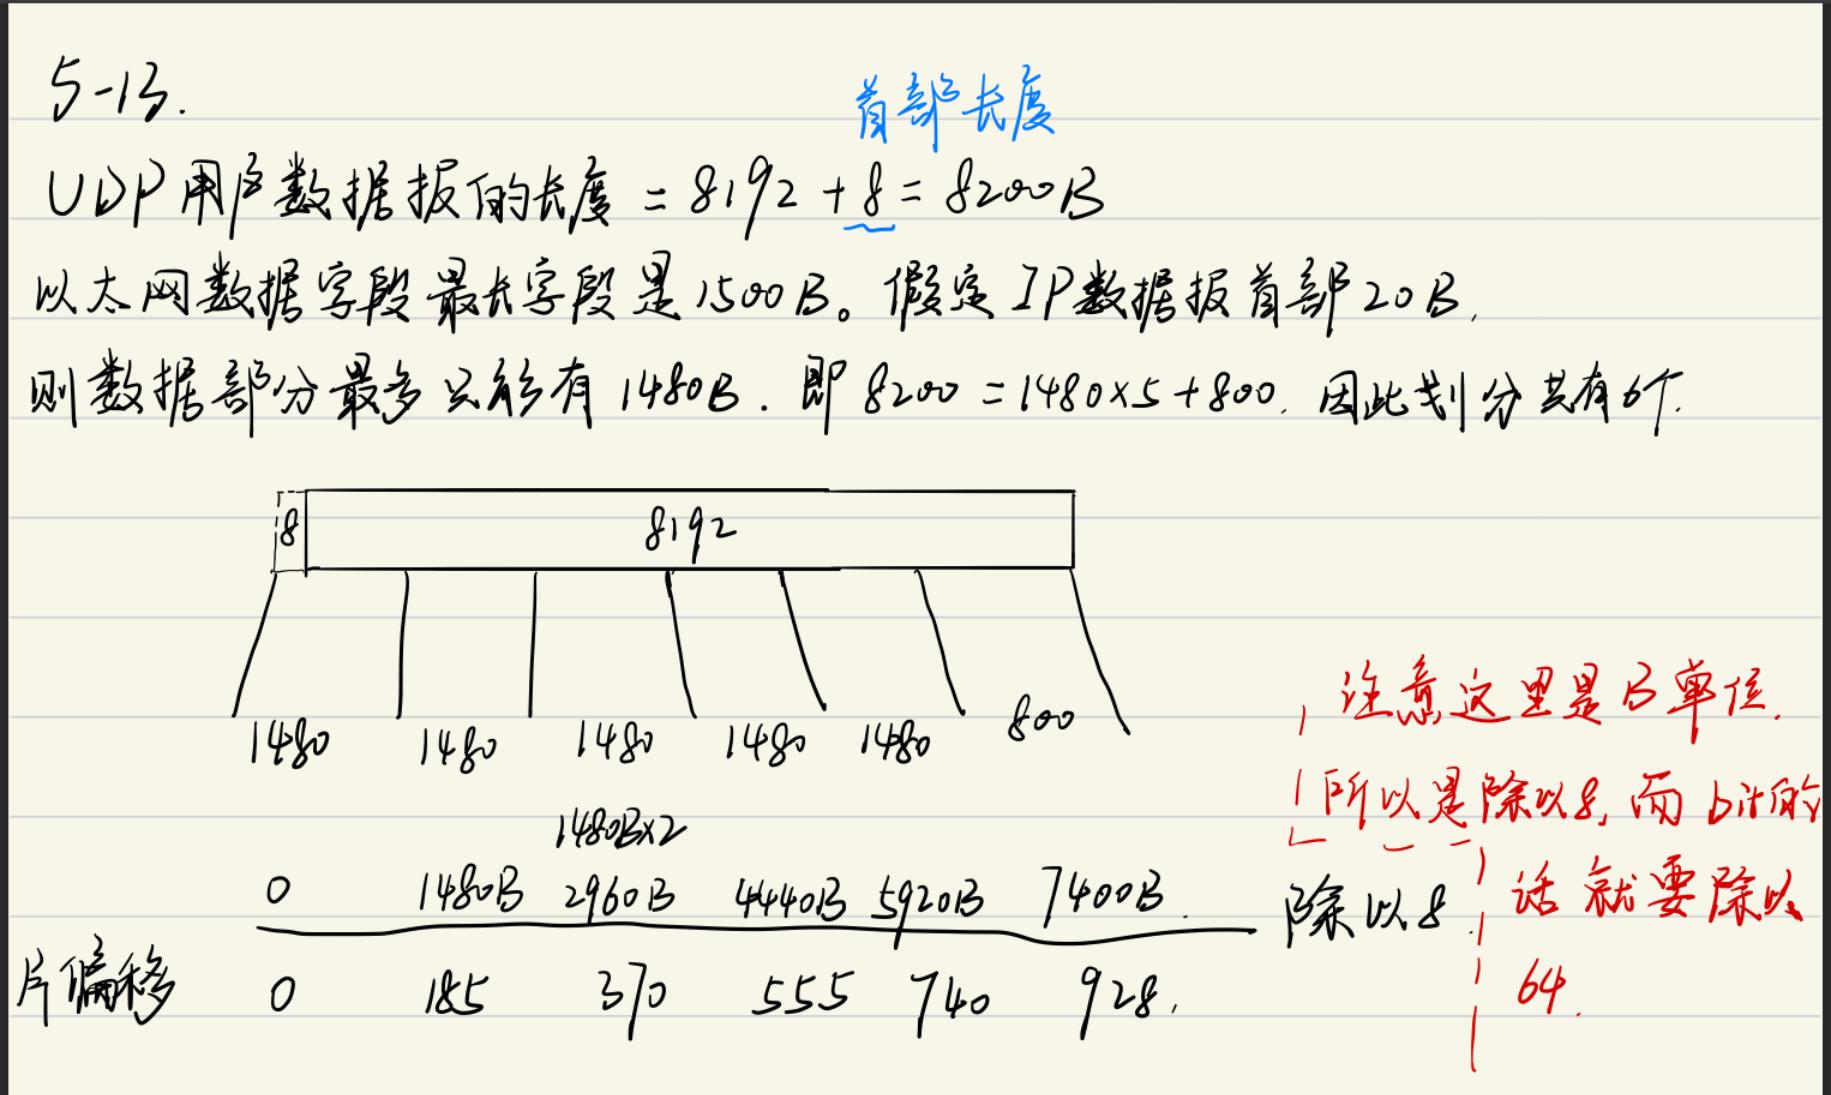 5-13.
首部长度
UDP用户数据报的长度 = 8192 + 8 = 8200B
以太网数据字段最长字段是1500B。假定IP数据报首部20B,
则数据部分最多只能有1480B. 即8200 = 1480×5+800. 因此划分共有6个.
8 8192
1480 1480 1480 1480 1480 800
1480B×2
0 1480B 2960B 4440B 5920B 7400B. 除以8.
片偏移 0 185 370 555 740 928.
注意这里是B单位.
所以是除以8, 而bit的
话就要除以
64.